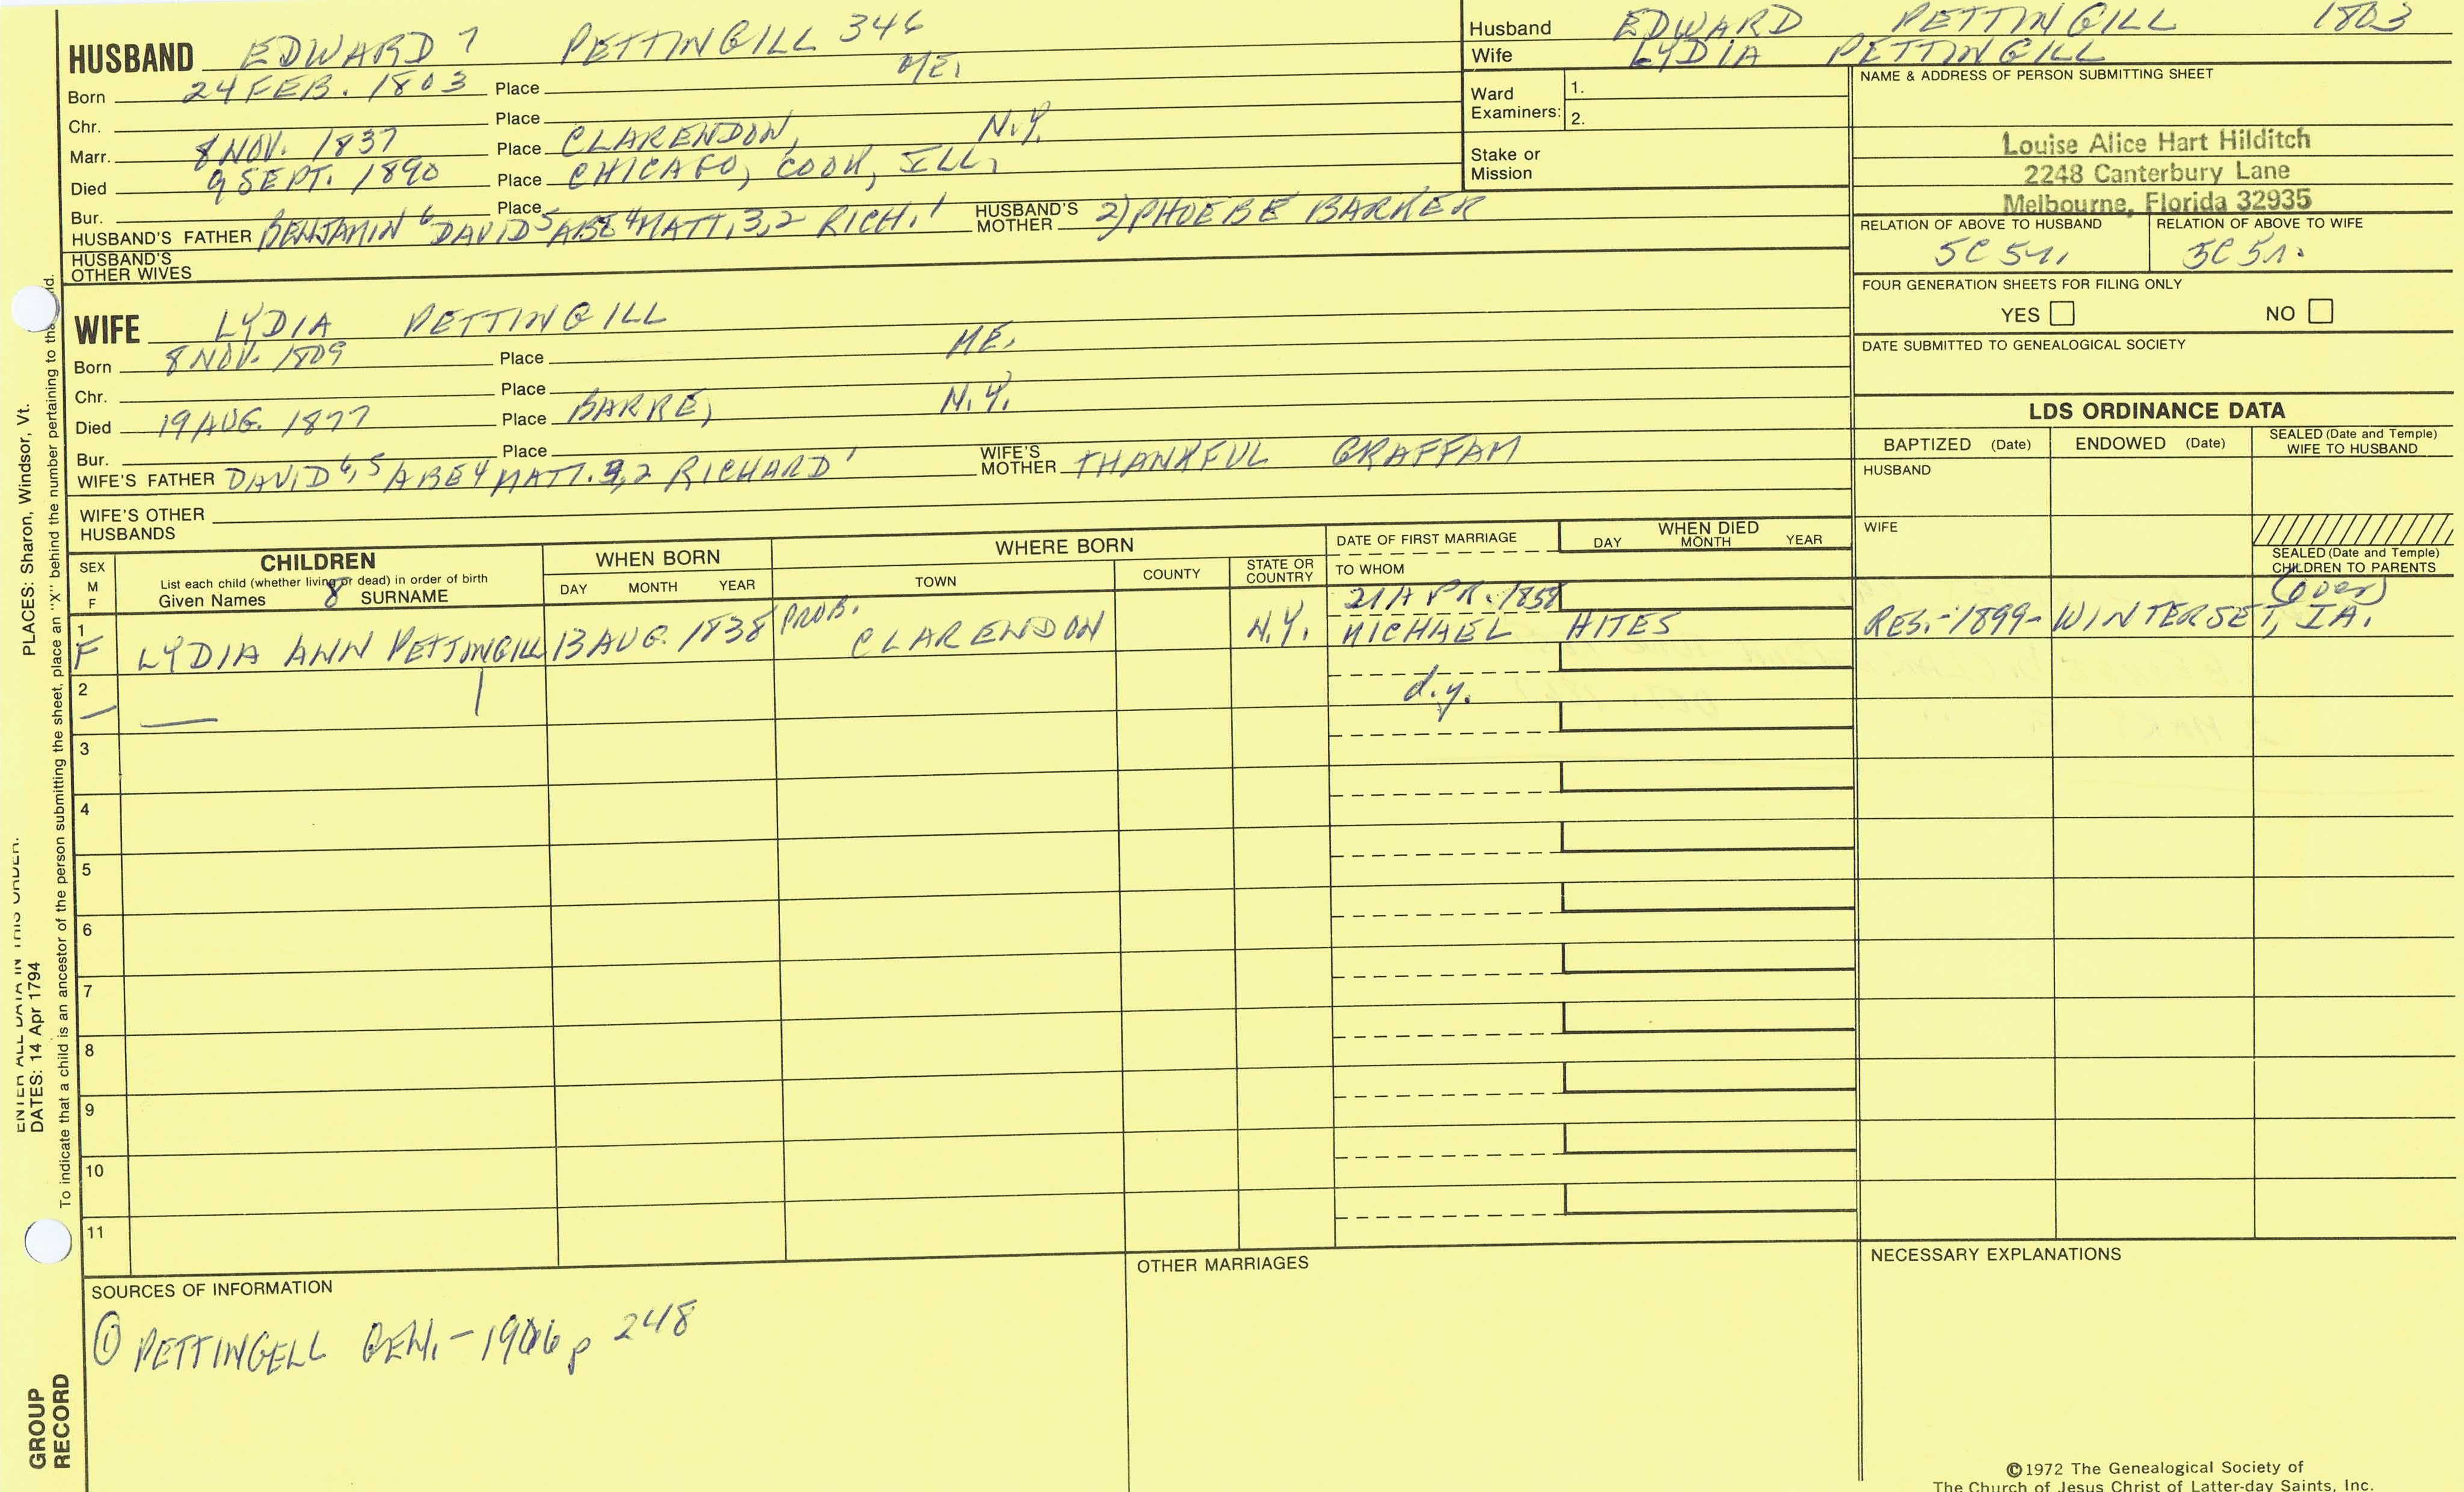 HUSBAND EDWARD 7 PETTINGILL 346
Born 24 FEB. 1803 Place ME.
Chr. Place
Marr. 8 NOV. 1837 Place CLARENDON, N.Y.
Died 9 SEPT. 1890 Place CHICAGO, COOK, ILL,
Bur. Place
HUSBAND'S FATHER BENJAMIN 6 DAVID 5 ABE 4 MATT, 3,2 RICH. 1 HUSBAND'S MOTHER 2) PHOEBE BARKER
HUSBAND'S
OTHER WIVES
Husband EDWARD PETTINGILL 1803
Wife LYDIA PETTINGILL
Ward
Examiners: 1.
2.
Stake or
Mission
NAME & ADDRESS OF PERSON SUBMITTING SHEET
Louise Alice Hart Hilditch
2248 Canterbury Lane
Melbourne, Florida 32935
RELATION OF ABOVE TO HUSBAND RELATION OF ABOVE TO WIFE
5C 5r. 5C 5r.
FOUR GENERATION SHEETS FOR FILING ONLY
YES NO
DATE SUBMITTED TO GENEALOGICAL SOCIETY
WIFE LYDIA PETTINGILL
Born 8 NOV. 1809 Place ME.
Chr. Place
Died 19 AUG. 1877 Place BARRE, N.Y.
Bur. Place
WIFE'S FATHER DAVID 6, 5 ABE 4 MATT. 3,2 RICHARD 1 WIFE'S MOTHER THANKFUL GRAFFAM
WIFE'S OTHER
HUSBANDS
LDS ORDINANCE DATA
BAPTIZED (Date) ENDOWED (Date) SEALED (Date and Temple)
WIFE TO HUSBAND
HUSBAND
WIFE
SEALED (Date and Temple)
CHILDREN TO PARENTS
SEX
M
F
CHILDREN
List each child (whether living or dead) in order of birth
Given Names 8 SURNAME
WHEN BORN
DAY MONTH YEAR
WHERE BORN
TOWN COUNTY STATE OR
COUNTRY
DATE OF FIRST MARRIAGE
TO WHOM
WHEN DIED
DAY MONTH YEAR
1 21 APR. 1858 (over)
F LYDIA ANN PETTINGILL 13 AUG. 1838 PROB. CLARENDON N.Y. MICHAEL HITES RES.-1899- WINTERSET, IA.
2 — — | d.y.
3
4
5
6
7
8
9
10
11
SOURCES OF INFORMATION
① PETTINGELL GEN. - 1906 p 248
OTHER MARRIAGES
NECESSARY EXPLANATIONS
©1972 The Genealogical Society of
The Church of Jesus Christ of Latter-day Saints, Inc.
ENTER ALL DATA IN THIS ORDER.
DATES: 14 Apr 1794
PLACES: Sharon, Windsor, Vt.
To indicate that a child is an ancestor of the person submitting the sheet, place an "X" behind the number pertaining to
GROUP
RECORD